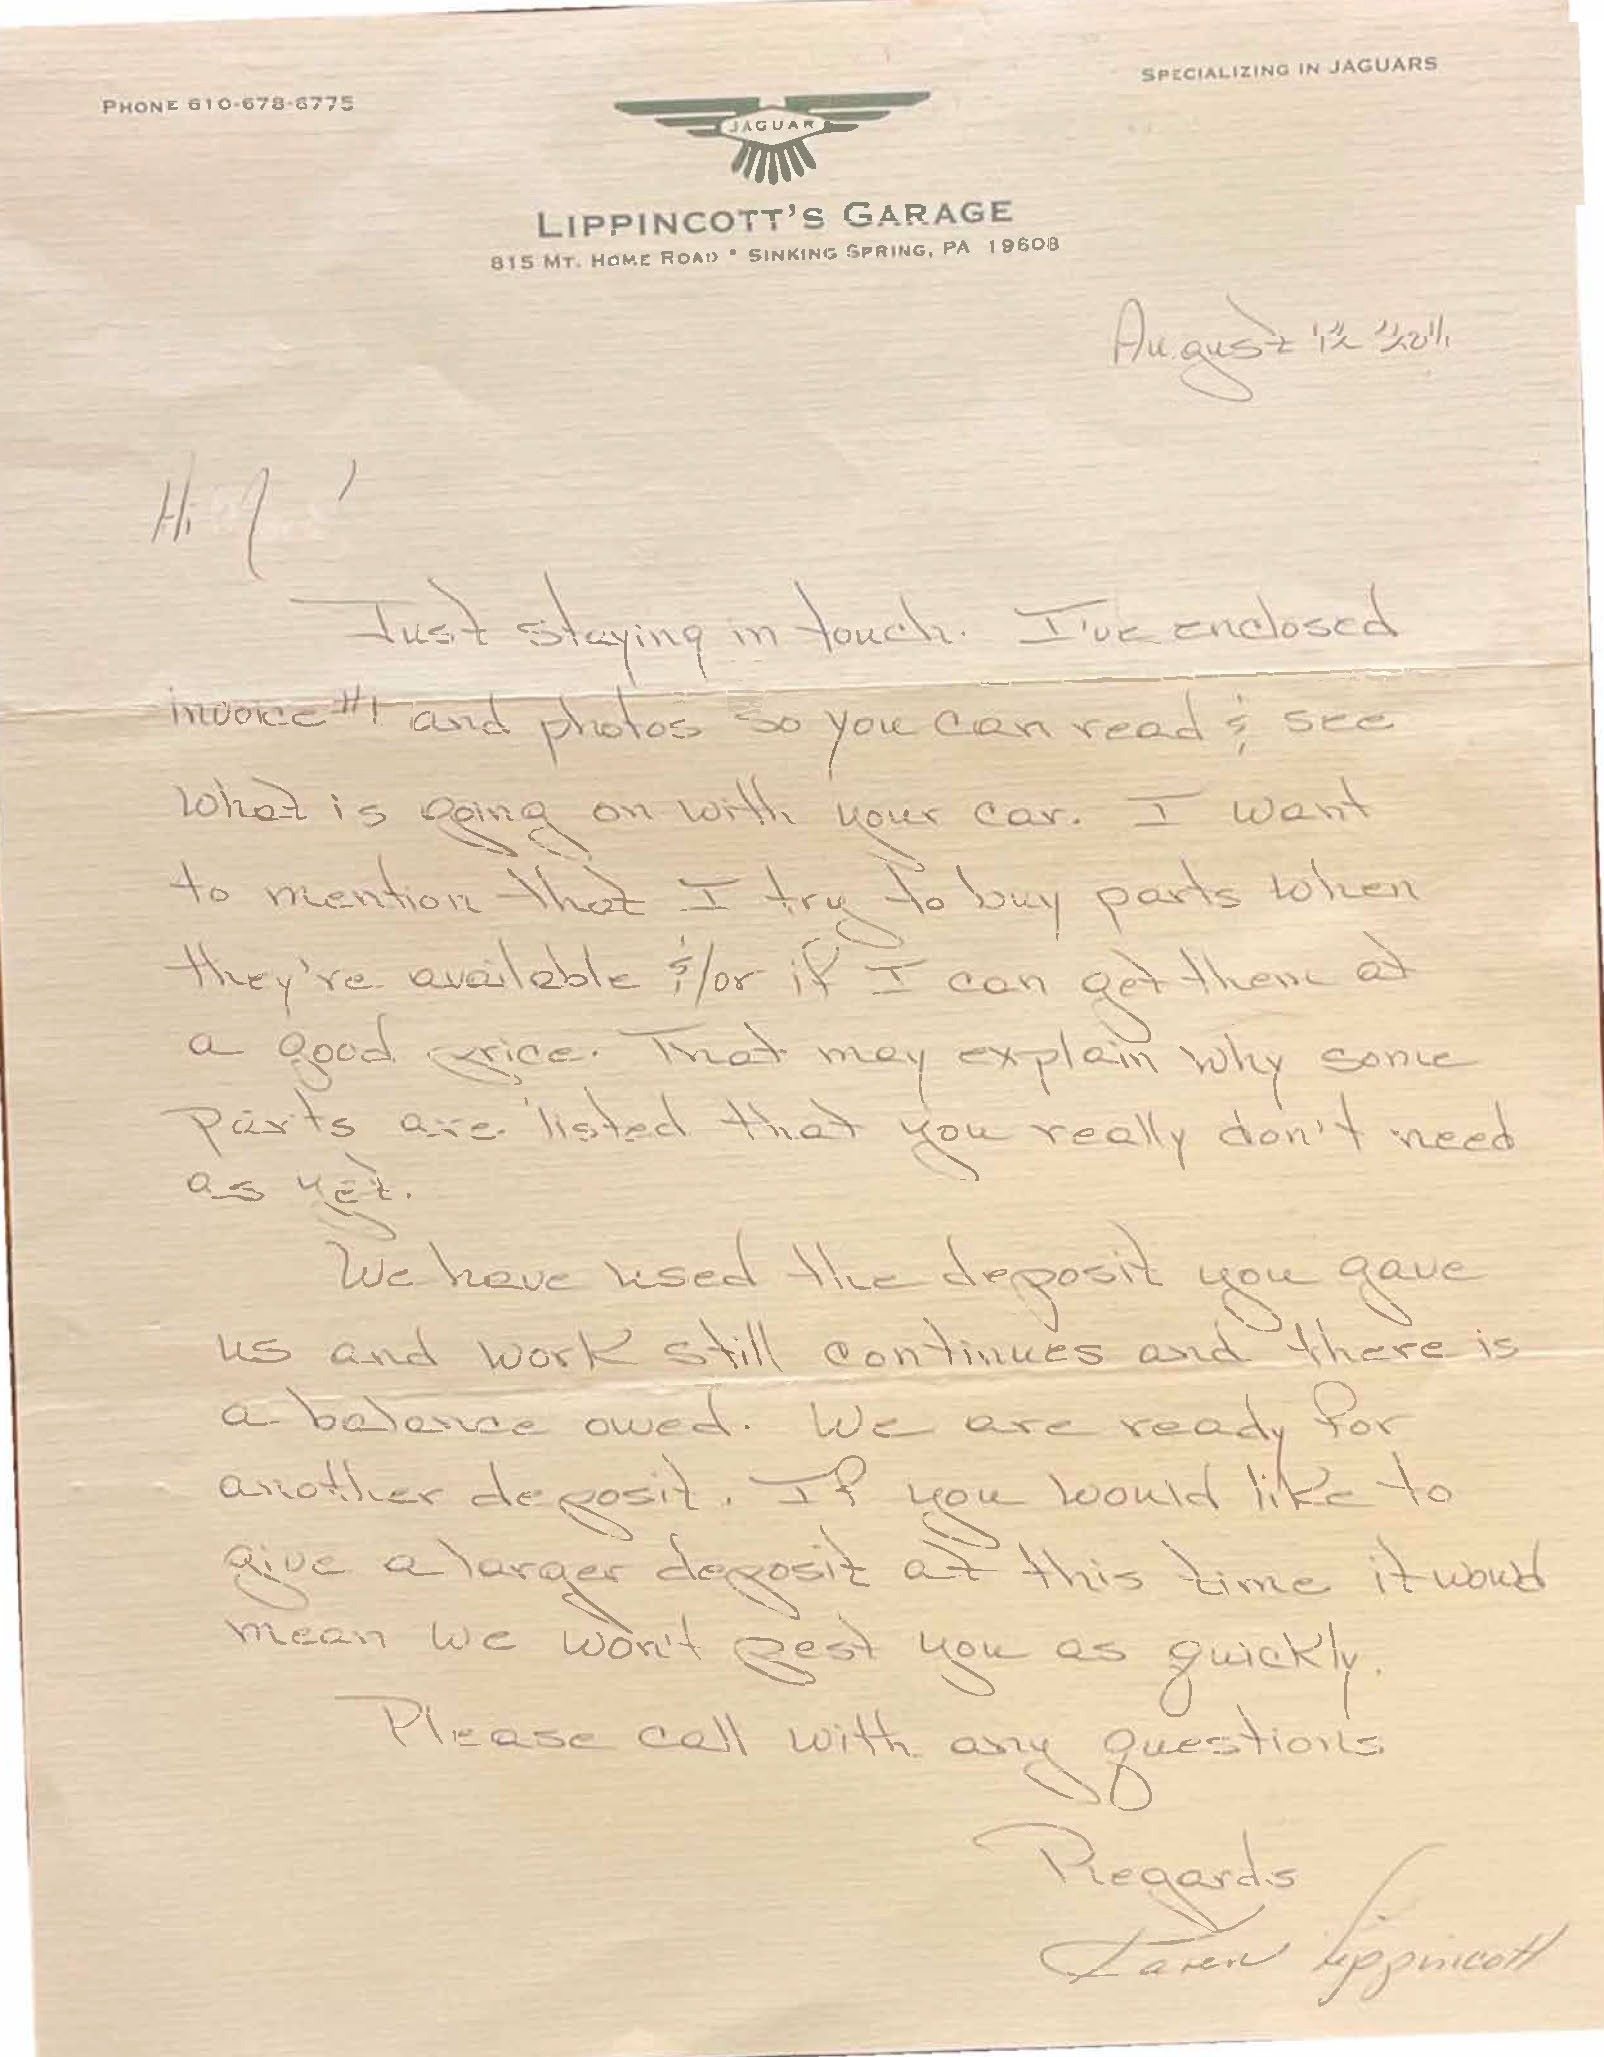 PHONE 610-678-6775
SPECIALIZING IN JAGUARS
JAGUAR
LIPPINCOTT'S GARAGE
815 MT. HOME ROAD • SINKING SPRING, PA 19608
August
Hi
Just staying in touch. I've enclosed
invoice #1 and photos so you can read & see
what is going on with your car. I want
to mention that I try to buy parts when
they're available &/or if I can get them at
a good price. That may explain why some
parts are listed that you really don't need
as yet.
We have used the deposit you gave
us and work still continues and there is
a balance owed. We are ready for
another deposit. If you would like to
give a larger deposit at this time it would
mean we won't pest you as quickly.
Please call with any questions.
Regards
Karen Lippincott